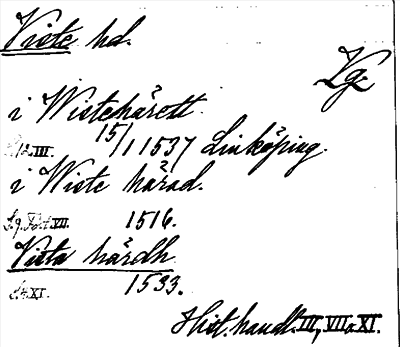 Viste hd.
Vg.
i Wistehärett
15/1 1537 Linköping.
i Wiste härad.
1516.
Vista härdh
1533.
Hist. handl. III, VII o XI.